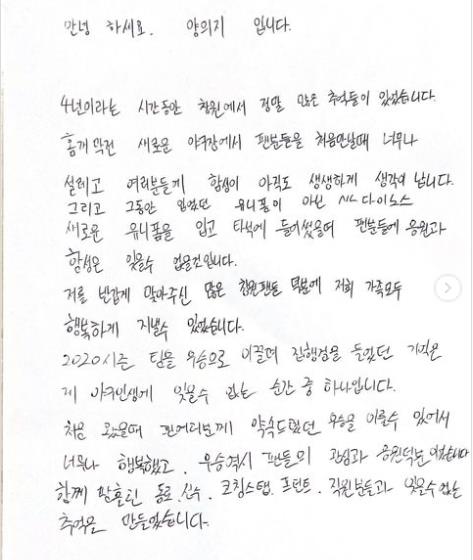 안녕 하세요. 양의지 입니다.
4년이라는 시간동안 창원에서 정말 많은 추억들이 있었습니다.
홈개막전 새로운 야구장에서 팬분들을 처음만날때 너무나
설레고 여러분들께 함성이 아직도 생생하게 생각이 납니다.
그리고 그동안 입었던 유니폼이 아닌 NC 다이노스
새로운 유니폼을 입고 타석에 들어섰을때 팬분들에 응원과
함성은 잊을수 없을것입니다.
저를 반갑게 맞아주신 많은 창원팬들 덕분에 저희 가족모두
행복하게 지낼수 있었습니다.
2020시즌 팀을 우승으로 이끌며 집행검을 들었던 기억은
제 야구인생에 잊을수 없는 순간 중 하나입니다.
처음 왔을때 팬여러분께 약속드렸던 우승을 이룰수 있어서
너무나 행복했고, 우승역시 팬들의 관심과 응원덕분이었습니다
함께 땀흘린 동료 선수, 코칭스탭, 프런트, 직원분들과 잊을수 없는
추억은 만들었습니다.